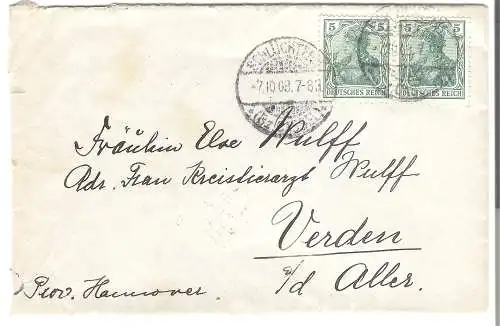 5 5 5 5
DEUTSCHES REICH DEUTSCHES REICH
SCHLÜCHTERN
-7.10.08.7-8
Fräulein Else Wulff
Adr. Frau Kreistierarzt Wulff
Verden
a/d Aller.
Prov. Hannover.